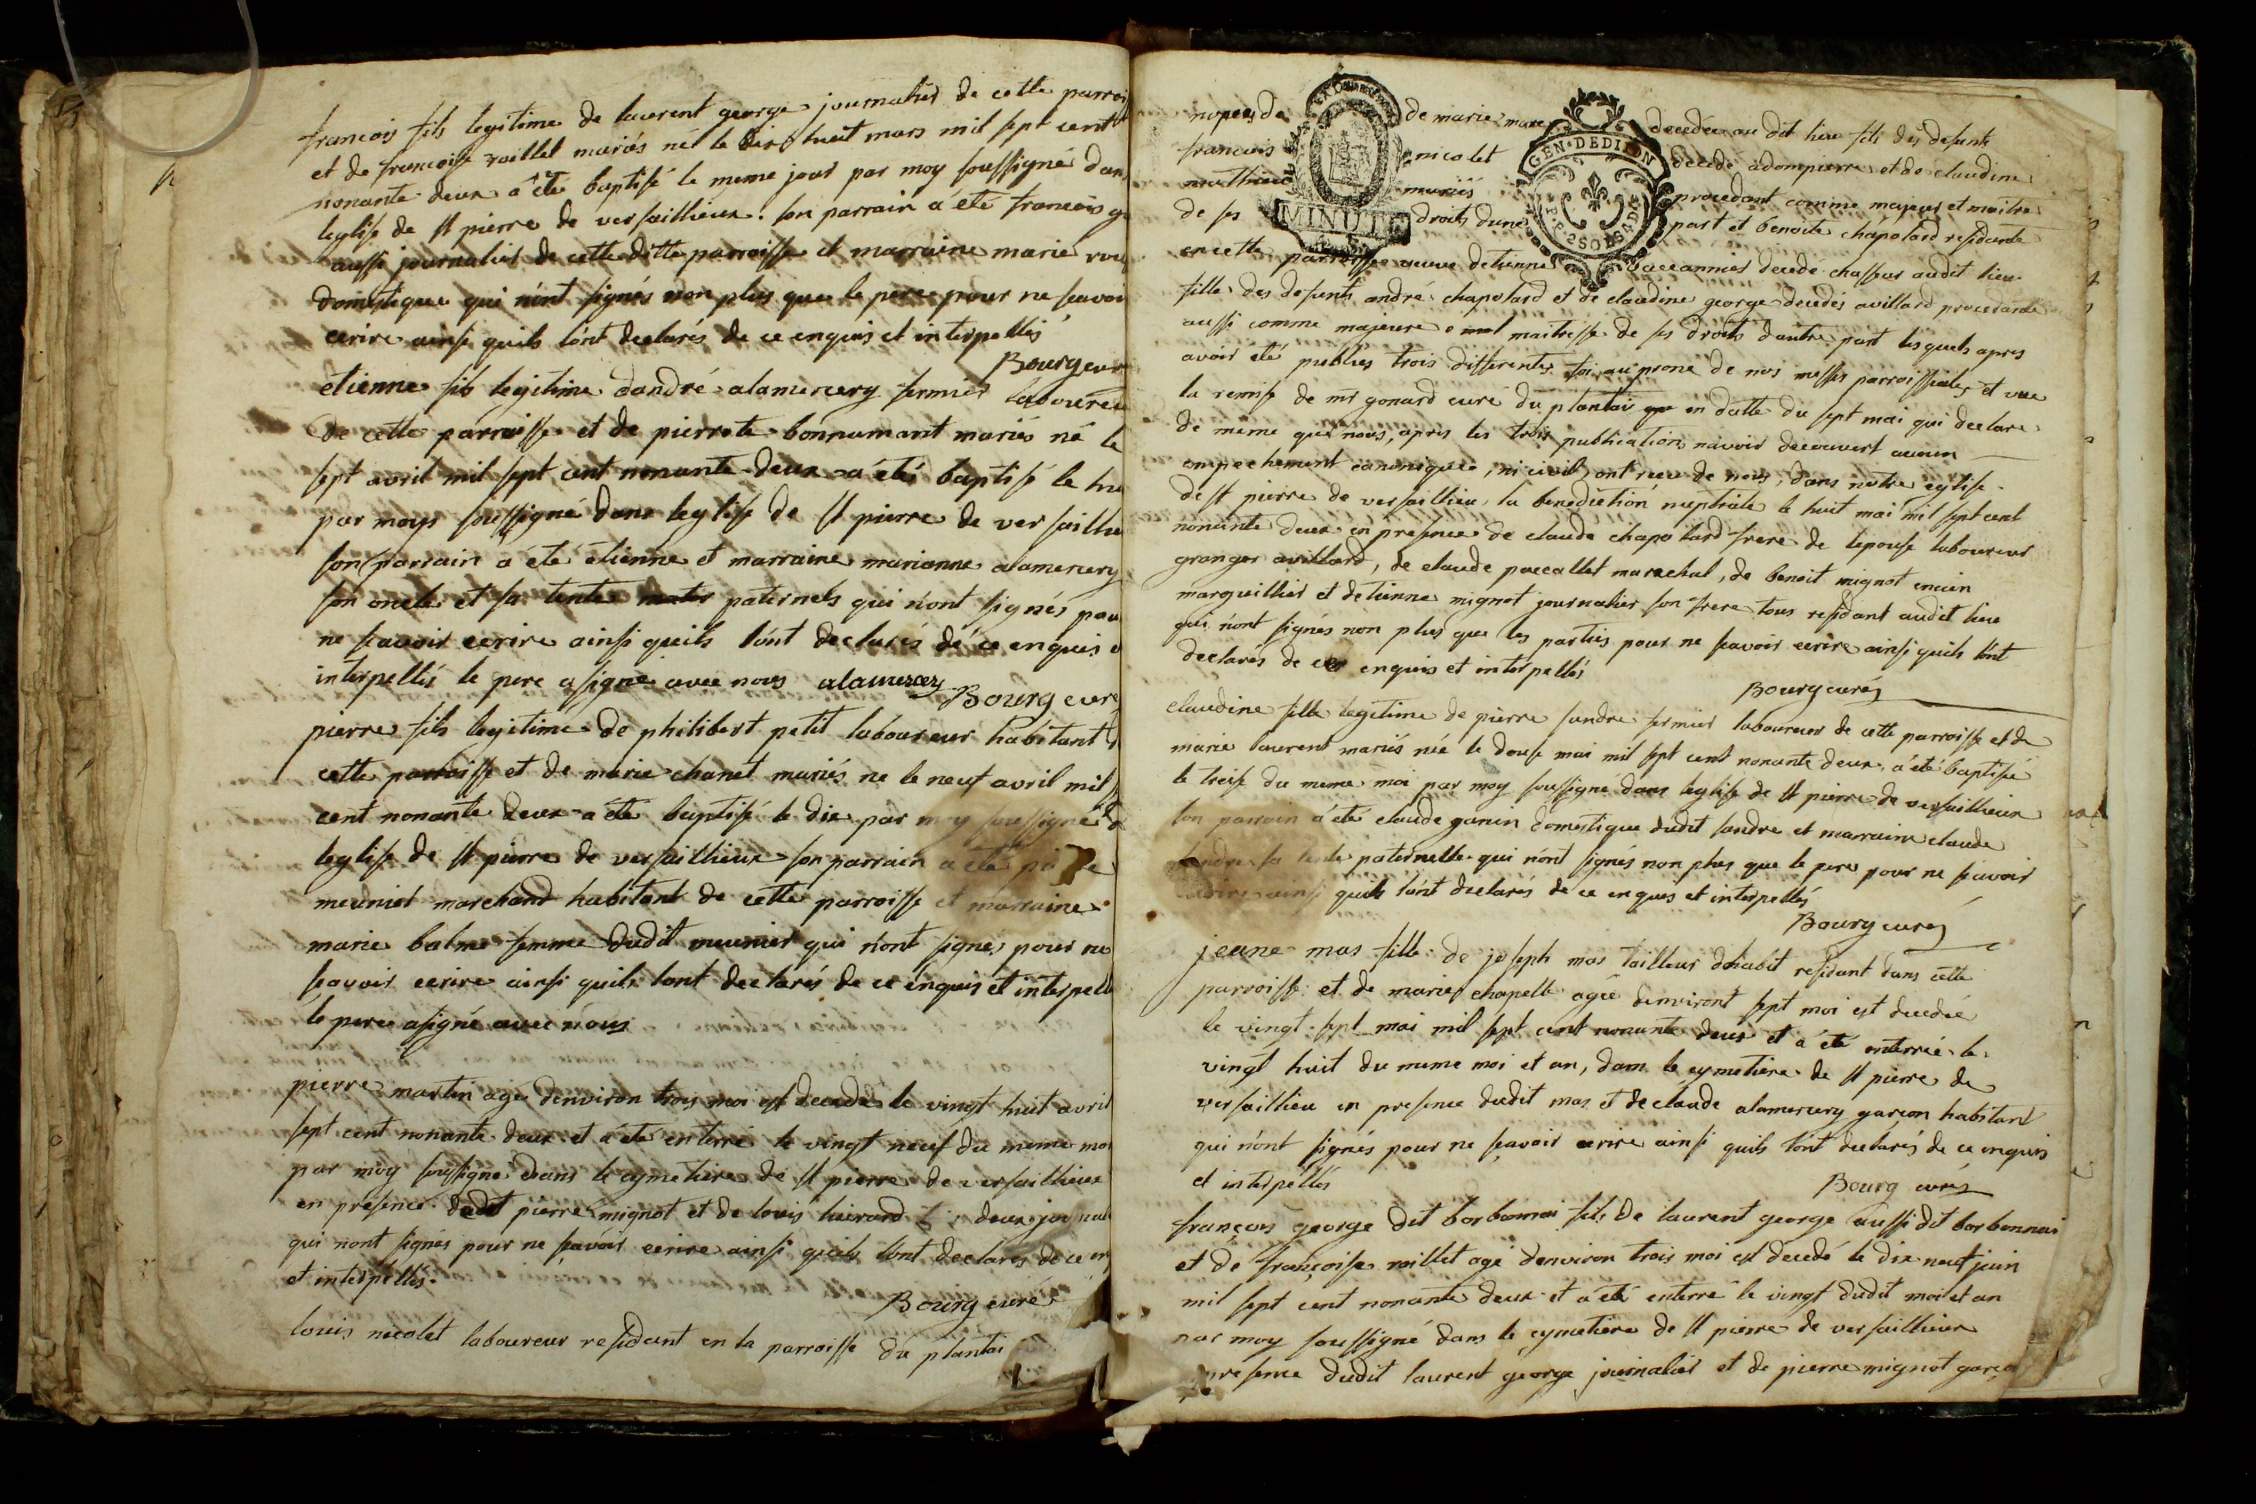 francois fils legitime de laurent george journalier de cette parroi
et de francoise vaillet mariés né le dix huit mars mil sept cent
nonante deux a été baptisé le meme jour par moy soussigné dans
leglise de st pierre de versaillieux. son parrain a été francois g
aussi journalier de cette ditte parroisse et marraine marie
domestique qui n'ont signés non plus que le pere pour ne scavoir
ecrire ainsi quils l'ont declarés de ce enquis et interpellés
Bourg curé
etienne fils legitime dandré alamercery fermier laboureur
de cette parroisse et de pierrete bonnamant mariés né le
sept avril mil sept cent nonante deux a été baptisé le hu
par moys soussigné dans leglise de st pierre de versaillie
son parrain a été etienne et marraine marianne alamercery
son oncle et sa tente paternels qui n'ont signés pou
ne scavoir ecrire ainsi quils l'ont declarés de ce enquis e
interpellés le pere a signé avec nous alamercery Bourg cure
pierre fils legitime de philibert petit laboureur habitant d
cette parroisse et de marie chanet mariés ne le neuf avril mil s
cent nonante deux a été baptisé le dix par moy soussigné d
leglise de st pierre de versaillieux son parrain a été
meunier marchand habitant de cette parroisse et marraine
marie balme femme dudit meunier qui n'ont signes pour ne
scavoir ecrire ainsi quils lont declarés de ce enquis et interpell
le pere a signé avec nous
pierre martin agé denviron trois moi est decedé le vingt huit avril
sept cent nonante deux et a été enterré le vingt neuf du meme moi
par moy soussigné dans le cymetiere de st pierre de versaillieux
en presence dudit pierre mignot et de louis deux journali
qui nont signés pour ne scavoir ecrire ainsi quils lont declarés de ce en
et interpellés.
Bourg curé
louis nicolet laboureur residant en la parroisse du plantai
de marie decedée au dit lieu fils des defunts
francois nicolet decedé adompierre et de claudine
mathieu mariés procedant comme majeur et maitre
de ses droits dune part et benoite chapolard residante
GEN. DE DIJON
MINUTE
P.P. 2 SOLS 4 D.
en cette parroisse veuve detienne decedé chasseur audit lieu
fille des defunts andré chapolard et de claudine george decedés avillard procedante
aussi comme majeure et maitresse de ses droits dautre part lesquels apres
avoir été publiés trois differentes foi au prone de nos messes parroissiales, et vue
la remise de mr gonard curé du plantai en datte du sept mai qui declare
de meme que nous, apres les trois publication navoir decouvert aucun
empechement canonique, ni civil, ont recu de nous, dans notre eglise
de st pierre de versaillieu la benediction nuptiale le huit mai mil sept cent
nonante deux en presence de claude chapolard frere de lepouse laboureur
granger avillard, de claude paccallet marechal, de benoit mignot encien
marguillier et detienne mignot journalier son frere tous residant audit lieu
qui n'ont signés non plus que les parties pour ne scavoir ecrire ainsi quils l'ont
declarés de ce enquis et interpellés
Bourg curé
claudine fille legitime de pierre sandre fermier laboureur de cette parroisse et de
marie laurent mariés née le douse mai mil sept cent nonante deux, a été baptisé
le treise du meme moi par moy soussigné dans leglise de st pierre de versaillieux
son parrain a été claude domestique dudit sandre et marraine claude
sandre sa tente paternelle qui n'ont signés non plus que le pere pour ne scavoir
ecrire ainsi quils l'ont declarés de ce enques et interpellés
Bourg curé
jeane mas fille de joseph mas tailleur dhabit residant dans cette
parroisse et de marie chapelle agée denviront sept moi est decedée
le vingt sept mai mil sept cent nonante deux et a été enterrée le
vingt huit du meme moi et an, dans le cymetiere de st pierre de
versaillieu en presence dudit mas et de claude alamercery garcon habitant
qui n'ont signés pour ne scavoir ecrire ainsi quils l'ont declarés de ce enquis
et interpellés
Bourg curé
françois george dit borbonnai fils de laurent george aussi dit borbonnai
et de françoise vaillet agé denviron trois moi est decedé le dix neuf juin
mil sept cent nonante deux et a été enterré le vingt dudit moi et an
par moy soussigné dans le cymetiere de st pierre de versaillieux
presence dudit laurent george journalier et de pierre mignot garço